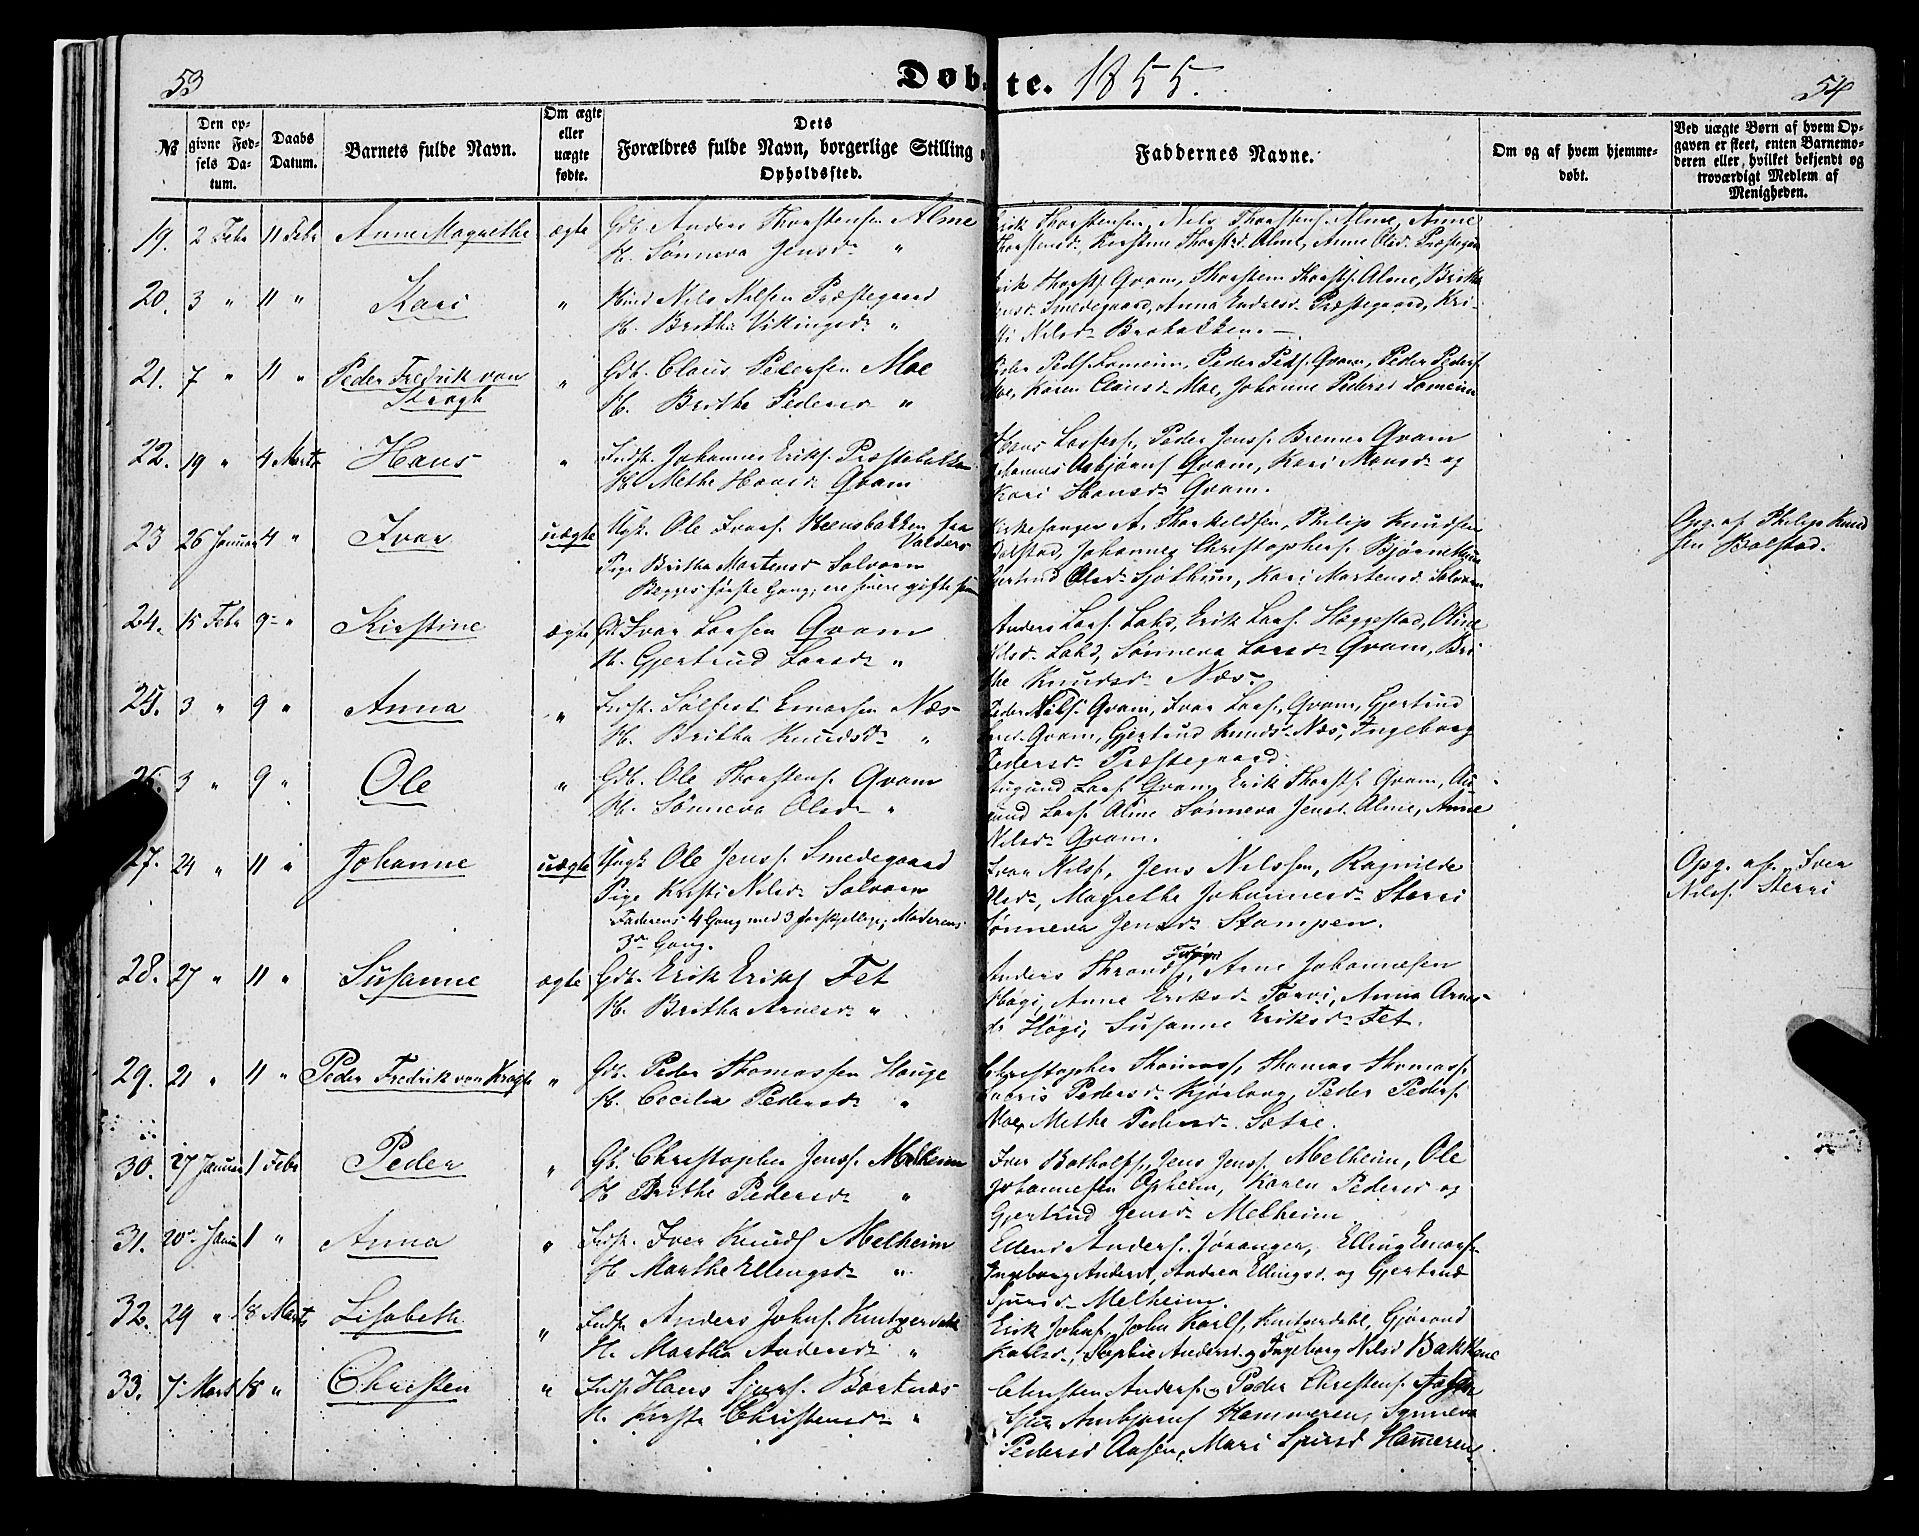 53
Døbte. 1855.
54
№
Den opgivne Fødsels Datum.
Daabs Datum.
Barnets fulde Navn.
Om ægte eller uægte fødte.
Dets Forældres fulde Navn, borgerlige Stilling
Opholdssted.
Faddernes Navne.
Om og af hvem hjemmedøbt.
Ved uægte Børn af hvem Opgaven er skeet, enten Barnemoderen eller, hvilket bekjendt og troværdigt Medlem af Menigheden.
19. 2 Febr 11 Febr Anne Magrethe ægte Gdb. Anders Thorstensen Alme
H. Sønneva Jensd. "
Erik Thorstensen, Nils Thorstens. Alme, Anne
Thorstensd. Kirstine Thorstd. Alme, Anne Olsd. Præstegaa
20. 3 " 11 " Kari " Huusd Nils Nilsen Præstegaard
H. Brithe Vikingsd. "
Erik Thorsts. Qvam, Thorsten Thorsts. Alme, Britha
Jensd. Smedegaard, Anna Endresd. Præstegaard, Kri-
sti Nilsd. Brobakken. –
21. 7 " 11 " Peder Fredrik von Krogh " Gdb. Claus Pedersen Moe
H. Brithe Pedersd. "
Peder Peds. Lomeim, Peder Peds. Qvam, Peder Peders.
Moe, Karen Clausd. Moe, Johanne Pedersd Lomeim
22. 19 " 4 Marts Hans " Indst. Johannes Eriks. Præstebakken
H. Methe Hansd. Qvam
Hans Lasses., Peder Jenss. Bremer Qvam
Johannes Asbjørns. Qvam, Kari Monsd. og
Kari Hansd. Qvam.
23 26 Januar 4 " Ivar uægte Ugk. Ole Ivars. Hensbakken fra Valders
Pige Britha Mortensd Solvorn
Begges første Gang; ere senere gifte sam
Kirkesanger A. Thorkildsen, Philip Knudsen
Bolstad, Johannes Christophers. Bjørnethun
Gjertrud Olsd. Sjøthun, Kari Mortensd. Solvorn
Opg. af Philip Knud
sen Bolstad.
24. 15 Febr 9 " Kirstine ægte Gb Ivar Larsen Qvam
H. Gjertrud Larsd. "
Anders Lars. Lahd, Erik Lars. Heggestad, Oline
Nilsd. Lahd, Sønneva Larsd. Qvam, Bri
the Knudsd. Næs.
25. 3 " 9 " Anna " Indst. Sølfest Einarsen Næs
H. Britha Knudsd. "
Peder Nils. Qvam, Ivar Lars. Qvam, Gjertrud
Larsd. Qvam, Gjertrud Knudsd. Næs, Ingeborg
Pedersd. Præstegaard.
26. 3 " 9 " Ole " Gdb. Ole Thorstens. Qvam
H. Sønneva Olsd. "
Augund Lars. Qvam, Erik Thorsts. Qvam, Au
gund Lars. Alme Sønneva Jensd. Alme, Anne
Nilsd. Qvam.
27. 24 " 11 " Johanne uægte Ungk Ole Jenss. Smedegaard
Pige Kristi Nilsd. Solvorn
Faderens 4 Gang med 3 forskjellige; Moderens
3de Gang.
Ivar Nils., Jens Nilssen, Ragnilde
Olsd., Magrethe Johannesd. Sterri
Sønneva Jensd. Stampen.
Opg. af Iver
Nils. Sterri
28. 27 " 11 " Susanne ægte Gdb. Erik Eriks. Fet
H. Britha Arnesd. "
Anders Thronds., Arne Johannesen
Høgi, Anne Eriksd. Torvi, Anna Arnes
d. Høgi, Susanne Eriksd. Fet.
29. 21 " 11 " Peder Fredrik von Krogh " Gdb. Peder Thomassen Hauge
H. Cecilia Pedersd. "
Christopher Thomass., Thomas Thomass.
Pedersd. Kjørlaug, Peder Peders.
Moe, Methe Pedersd. Sætre.
30. 27 Januar 1 Febr Peder " Gb. Christopher Jenss. Melheim
H Brithe Pedersd. "
Iver Botholfs., Jens Jenss. Melheim, Ole
Johannesen Opheim, Karen Pedersd og
Gjertrud Jensd. Melheim
31. 20 Janua 1 " Anna " Indst. Iver Knuds. Melheim
H. Marthe Ellingsd. "
Anders. Joranger, Elling Einars.
Ingeborg Andersd, Andrea Ellingsd. og Gjertrud
Sjursd. Melheim.
32. 29 " 18 Marts Lisabeth " Indst. Anders Johns. Kintzerdahl
H. Martha Andersd. "
Erik Johns., John Karls., Kintzerdahl, Gjørond
Karlsd., Sophie Andersd. og Ingeborg Nilsd Bakkene
33. 7 Mart 18 " Christen " Indst Hans Sjurs. Bortnæs
H. Kirsti Christensd. "
Christen Anders. og Peder Christens. Aasen
Ambjørns. Hammeren, Synneva
Pedersd Aasen, Mari Sjursd Hameren